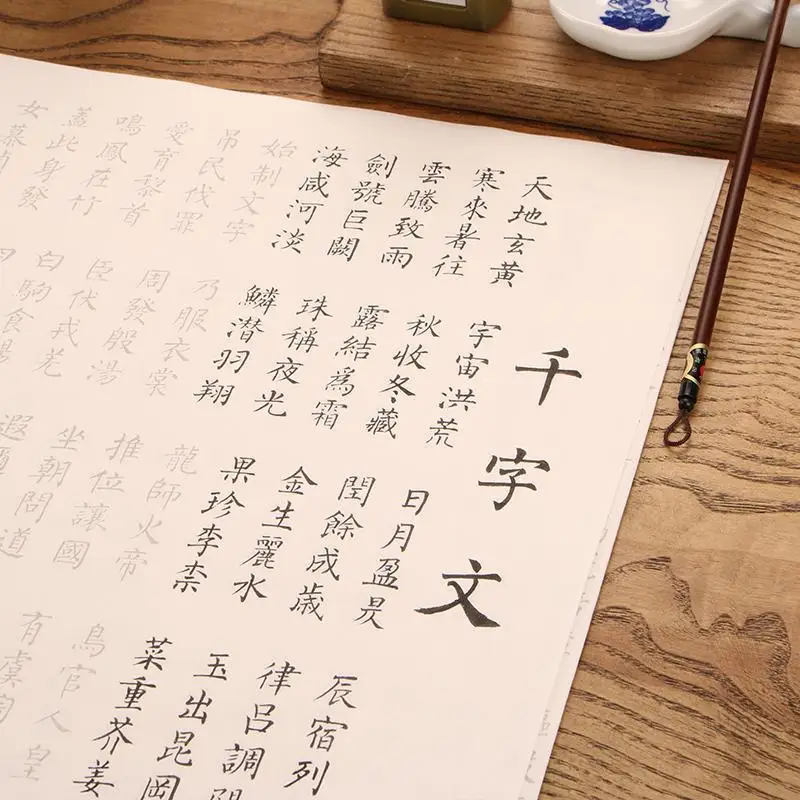 千字文
天地玄黃 宇宙洪荒 日月盈昃 辰宿列
寒來暑往 秋收冬藏 閏餘成歲 律呂調陽
雲騰致雨 露結爲霜 金生麗水 玉出昆岡
劍號巨闕 珠稱夜光 果珍李柰 菜重芥姜
海咸河淡 鱗潜羽翔 龍師火帝 鳥官人皇
始制文字 乃服衣裳 推位讓國 有虞陶
吊民伐罪 周發殷湯 坐朝問道
愛育黎首 臣伏戎羌 遐邇
鳴鳳在竹 白駒食場
蓋此身發
女慕貞